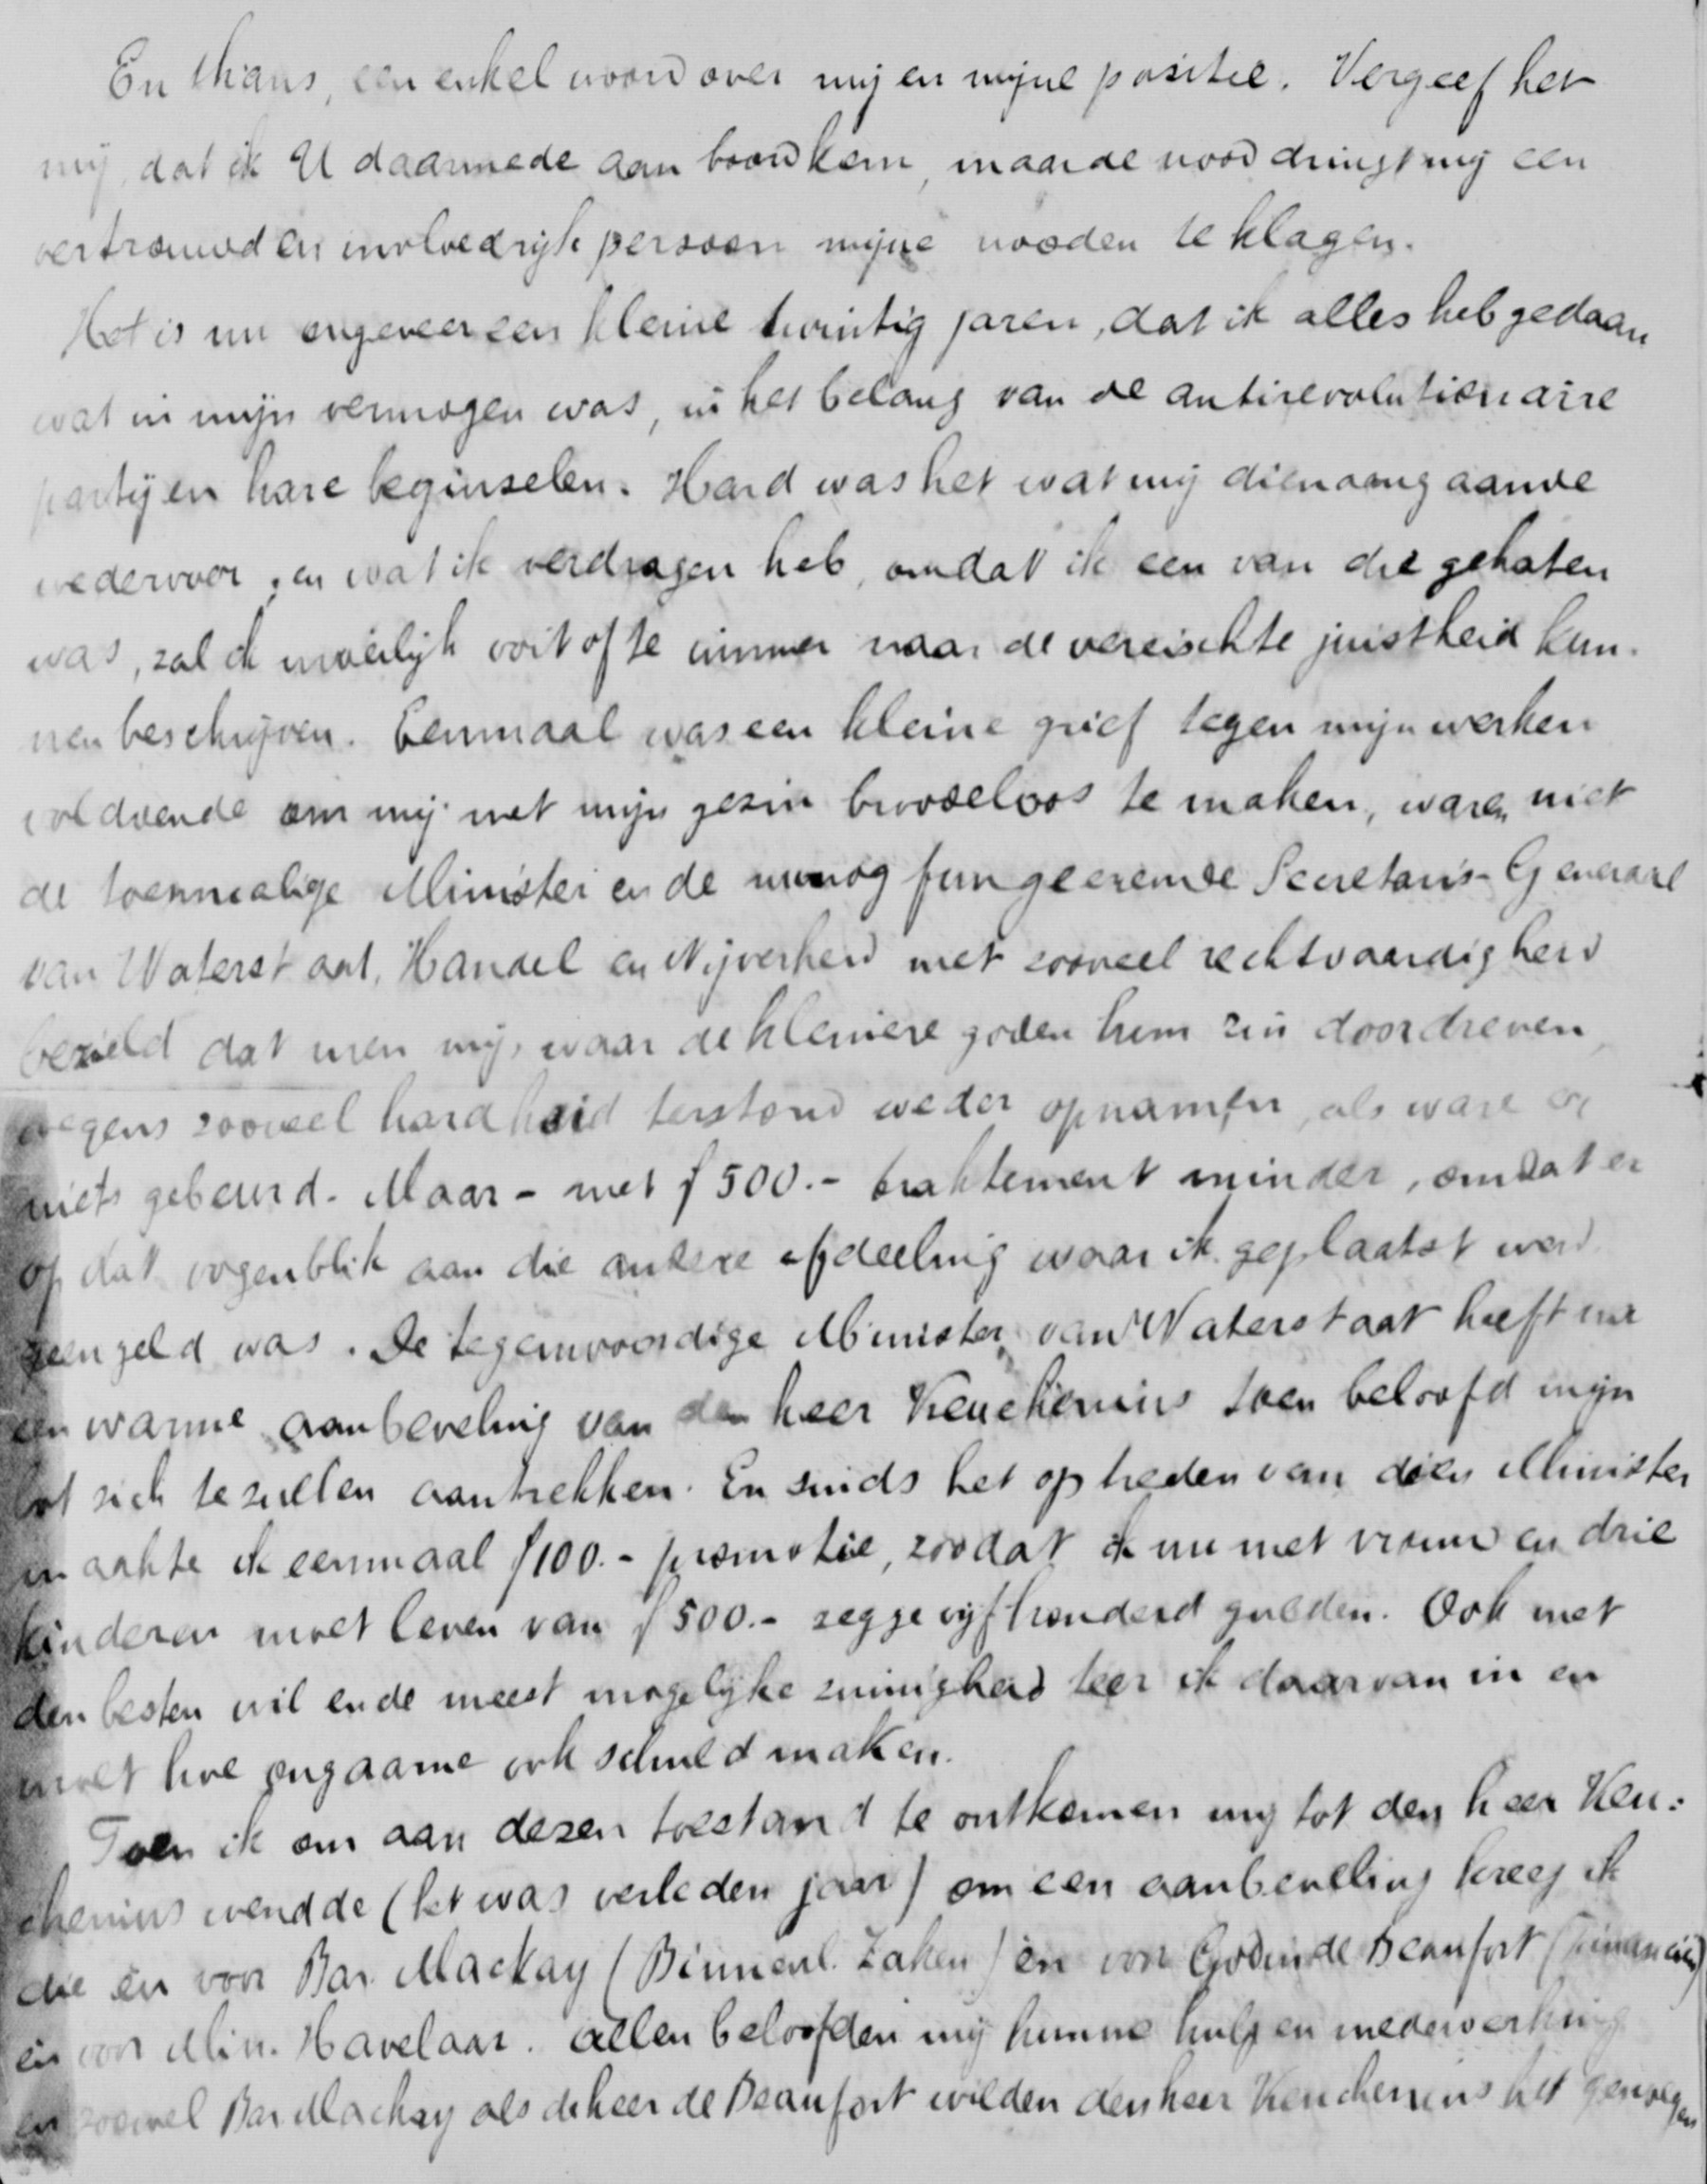 En thans, een enkel woord over mij en mijne positie. Vergeef het
mij, dat ik U daarmede aan boord kom, maar de nood dringt mij een
vertrouwd en invloedrijk persoon mijne nooden te klagen.
Het is nu ongeveer een kleine twintig jaren, dat ik alles heb gedaan
wat in mijn vermogen was, in het belang van de antirevolutionaire
partij en hare beginselen. Hard was het wat mij dienaangaande
wedervoer, en wat ik verdragen heb, omdat ik een van die gehaten
was, zal ik moeilijk ooit ofte nimmer naar de vereischte juistheid kun-
nen beschrijven. Eenmaal was een kleine grief tegen mijn werken
voldoende om mij met mijn gezin broodeloos te maken, waren niet
de toenmalige Minister en de nu nog fungeerende Secretaris-Generaal
van Waterstaat, Handel en Nijverheid met zooveel rechtvaardigheid
bezield dat men mij, waar de kleinere goden hun zin doordreven,
wegens zooveel hardheid terstond weder opnamen, als ware er
niets gebeurd. Maar - met f 500.- traktement minder, omdat er
op dat oogenblik aan die andere afdeeling waar ik geplaatst werd
geen geld was. De tegenwoordige Minister van Waterstaat heeft na
een warme aanbeveling van den heer Keuchenius toen beloofd mijn
lot zich te zullen aantrekken. En sinds het optreden van dien Minister
maakte ik eenmaal f 100.- promotie, zoodat ik nu met vrouw en drie
kinderen moet leven van f 500.- zegge vijfhonderd gulden. Ook met
den besten wil en de meest mogelijke zuinigheid teer ik daarvan in en
moet hoe ongaarne ook schuld maken.
Toen ik om aan dezen toestand te ontkomen mij tot den heer Keu-
chenius wendde (het was verleden jaar) om een aanbeveling kreeg ik
die èn voor Bar. Mackay (Binnenl. Zaken) èn voor Godin de Beaufort (Financiën)
èn voor Min. Havelaar. Allen beloofden mij hunne hulp en medewerking
en zoowel Bar Mackay als de heer de Beaufort wilden den heer Keuchenius het genoegen